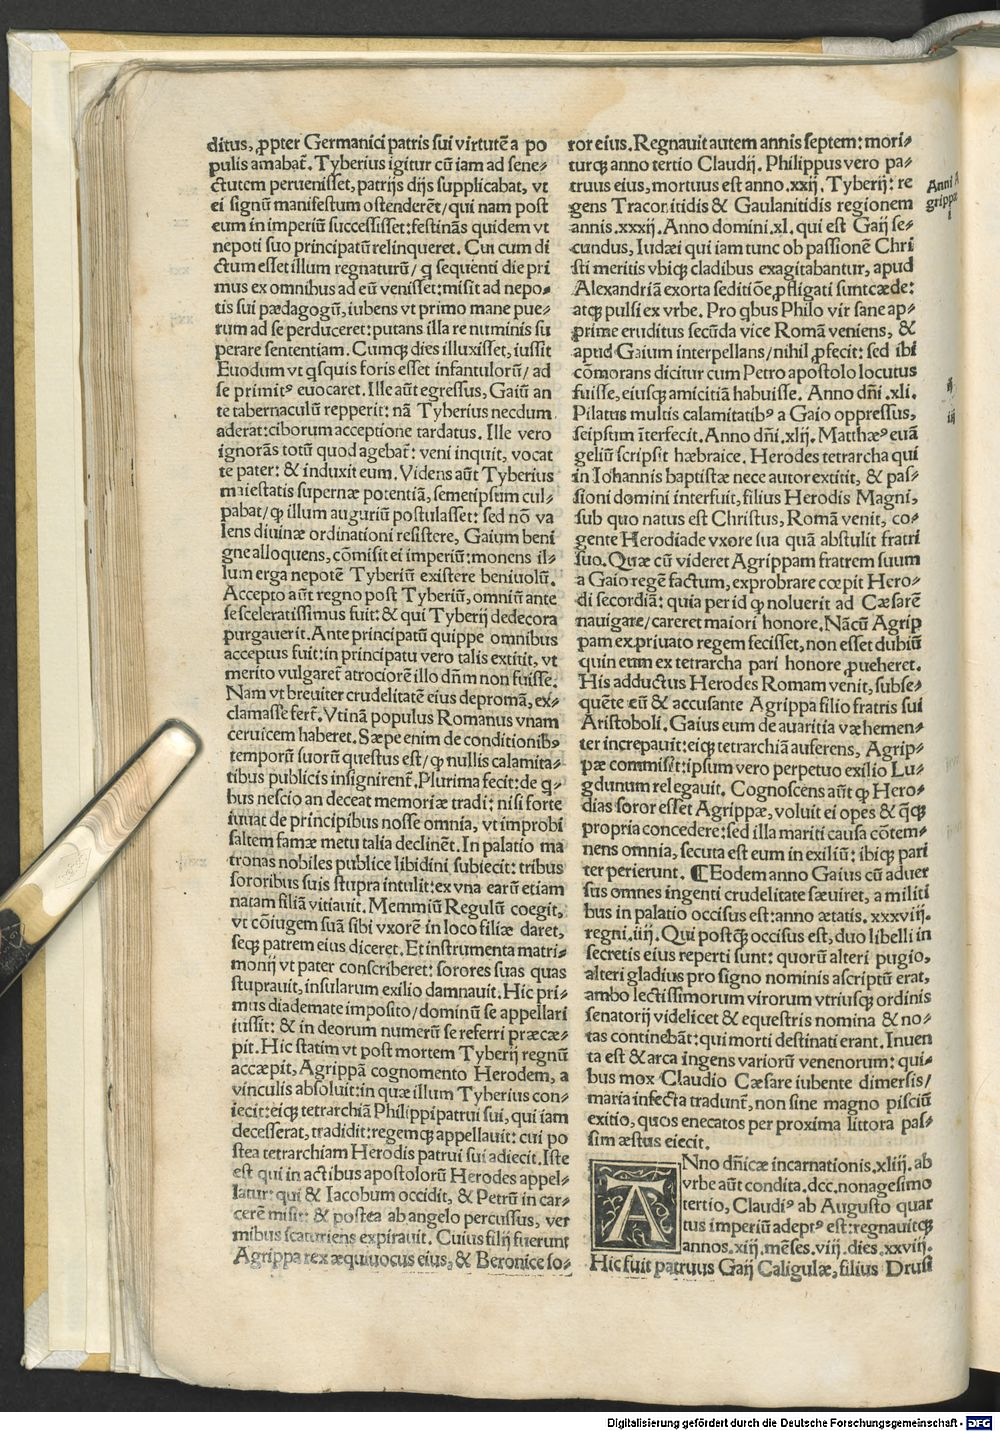 ditus, ꝓpter Germanici patris sui virtutē a po
pulis amabat᷑. Tyberius igitur cū iam ad sene⸗
ctutem peruenisset, patrijs dijs supplicabat, vt
ei signū manifestum ostenderēt/ qui nam post
eum in imperiū successisset: festināns quidem vt
nepoti suo principatū relinqueret. Cui cum di
ctum esset illum regnaturū/ q sequenti die pri
mus ex omnibus ad eū venisset: misit ad nepo⸗
tis sui pædagogū, iubens vt primo mane pue⸗
rum ad se perduceret: putans illa re numinis su
perare sententiam. Cumqꝫ dies illuxisset, iussit
Euodum vt qsquis foris esset infantulorū/ ad
se primitꝰ euocaret. Ille aūt egressus, Gaiū an
te tabernaculū repperit: nā Tyberius necdum
aderat: ciborum acceptione tardatus. Ille vero
ignorās totū quod agebat᷑: veni inquit, vocat
te pater: & induxit eum. Videns aūt Tyberius
maiestatis supernæ potentiā, semetipsum cul⸗
pabat/ ꝙ illum auguriū postulasset: sed nō va
lens diuinæ ordinationi resistere, Gaium beni
gne alloquens, cōmisit ei imperiū: monens il⸗
lum erga nepotē Tyberiū existere beniuolū.
Accepto aūt regno post Tyberiū, omniū ante
se sceleratissimus fuit: & qui Tyberij dedecora
purgauerit. Ante principatū quippe omnibus
acceptus fuit: in principatu vero talis extitit, vt
merito vulgaret᷑ atrociorē illo dn̄m non fuisse.
Nam vt breuiter crudelitatē eius depromā, ex⸗
clamasse fert᷑. Vtinā populus Romanus vnam
ceruicem haberet. Sæpe enim de conditionibꝰ
temporū suorū questus est/ ꝙ nullis calamita⸗
tibus publicis insignirent᷑. Plurima fecit: de q⸗
bus nescio an deceat memoriæ tradi: nisi forte
iuuat de principibus nosse omnia, vt improbi
saltem famæ metu talia declinēt. In palatio ma
tronas nobiles publice libidini subiecit: tribus
sororibus suis stupra intulit: ex vna earū etiam
natam filiā vitiauit. Memmiū Regulū coegit,
vt cōiugem suā sibi vxorē in loco filiæ daret,
seqꝫ patrem eius diceret. Et instrumenta matri⸗
monij vt pater conscriberet: sorores suas quas
stuprauit, insularum exilio damnauit. Hic pri⸗
mus diademate imposito/ dominū se appellari
iussit: & in deorum numerū se referri præcæ⸗
pit. Hic statim vt post mortem Tyberij regnū
accæpit, Agrippā cognomento Herodem, a
vinculis absoluit: in quæ illum Tyberius con⸗
iecit: eiqꝫ tetrarchiā Philippi patrui sui, qui iam
decesserat, tradidit: regemqꝫ appellauit: cui po
stea tetrarchiam Herodis patrui sui adiecit. Iste
est qui in actibus apostolorū Herodes appel⸗
latur: qui & Iacobum occidit, & Petrū in car⸗
cerē misit: & postea ab angelo percussus, ver
mibus scaturiens expirauit. Cuius filij fuerunt
Agrippa rex æquiuocus eius, & Beronice so⸗
ror eius. Regnauit autem annis septem: mori⸗
turqꝫ anno tertio Claudij. Philippus vero pa⸗
truus eius, mortuus est anno .xxij. Tyberij: re
gens Traconitidis & Gaulanitidis regionem
annis .xxxij. Anno domini .xl. qui est Gaij se⸗
cundus, Iudæi qui iam tunc ob passionē Chri
sti meritis vbiqꝫ cladibus exagitabantur, apud
Alexandriā exorta seditiōe ꝓfligati sunt cæde:
atqꝫ pulsi ex vrbe. Pro qbus Philo vir sane ap⸗
prime eruditus secūda vice Romā veniens, &
apud Gaium interpellans/ nihil ꝓfecit: sed ibi
cōmorans dicitur cum Petro apostolo locutus
fuisse, eiusqꝫ amicitiā habuisse. Anno dn̄i .xli.
Pilatus multis calamitatibꝰ a Gaio oppressus,
seipsum īterfecit. Anno dn̄i .xlij. Matthæꝰ euā
geliū scripsit hæbraice. Herodes tetrarcha qui
in Iohannis baptistæ nece autor extitit, & pas⸗
sioni domini interfuit, filius Herodis Magni,
sub quo natus est Christus, Romā venit, co⸗
gente Herodiade vxore sua quā abstulit fratri
suo. Quæ cū videret Agrippam fratrem suum
a Gaio regē factum, exprobrare cœpit Hero⸗
di secordiā: quia per id ꝙ noluerit ad Cæsarē
nauigare/ careret maiori honore. Nā cū Agrip
pam ex priuato regem fecisset, non esset dubiū
quin eum ex tetrarcha pari honore ꝓueheret.
His adductus Herodes Romam venit, subse⸗
quēte eū & accusante Agrippa filio fratris sui
Aristoboli. Gaius eum de auaritia væhemen⸗
ter increpauit: eiqꝫ tetrarchiā auferens, Agrip⸗
pæ commisit: ipsum vero perpetuo exilio Lu⸗
gdunum relegauit. Cognoscens aūt ꝙ Hero⸗
dias soror esset Agrippæ, voluit ei opes & q̄qꝫ
propria concedere: sed illa mariti causa cōtem⸗
nens omnia, secuta est eum in exiliū: ibiqꝫ pari
ter perierunt. ¶Eodem anno Gaius cū aduer
sus omnes ingenti crudelitate sæuiret, a militi
bus in palatio occisus est: anno ætatis .xxxviij.
regni .iiij. Qui postqꝫ occisus est, duo libelli in
secretis eius reperti sunt: quorū alteri pugio,
alteri gladius pro signo nominis ascriptū erat,
ambo lectissimorum virorum vtriusqꝫ ordinis
senatorij videlicet & equestris nomina & no⸗
tas continebāt: qui morti destinati erant. Inuen
ta est & arca ingens variorū venenorum: qui⸗
bus mox Claudio Cæsare iubente dimersis/
maria infecta tradunt᷑, non sine magno pisciū
exitio, quos enecatos per proxima littora pas⸗
sim æstus eiecit.
ANno dn̄icæ incarnationis .xliij. ab
vrbe aūt condita .dcc. nonagesimo
tertio, Claudiꝰ ab Augusto quar
tus imperiū adeptꝰ est: regnauitqꝫ
annos .xiij. mēses .viij. dies .xxviij.
Hic fuit patruus Gaij Caligulæ, filius Drusi
Anni A
grippæ
i
ij
iij
Digitalisierung gefördert durch die Deutsche Forschungsgemeinschaft - DFG